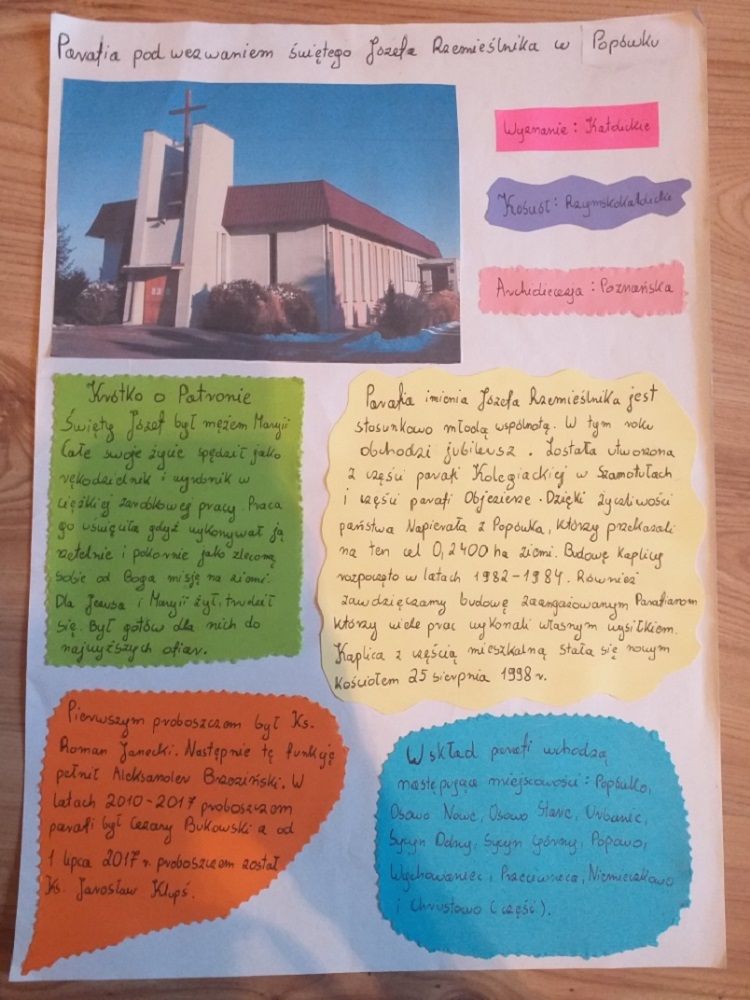 Parafia pod wezwaniem świętego Józefa Rzemieślnika w Popówku
Wyznanie : Katolickie
Kościół : Rzymskokatolicki
Archidiecezja : Poznańska
Krótko o Patronie
Święty Józef był mężem Maryji
Całe swoje życie spędził jako
rękodzielnik i wyrobnik w
ciężkiej zarobkowej pracy. Praca
go uświęciła gdyż wykonywał ją
rzetelnie i pokornie jako zleconą
sobie od Boga misję na ziemi.
Dla Jezusa i Maryji żył, trudził
się. Był gotów dla nich do
najwyższych ofiar.
Parafia imienia Józefa Rzemieślnika jest
stosunkowo młodą wspólnotą. W tym roku
obchodzi jubileusz. Została utworzona
z części parafi Kolegiackiej w Szamotułach
i części parafi Objezierze. Dzięki życzliwości
państwa Napierała z Popówka, którzy przekazali
na ten cel 0,2400 ha ziemi. Budowę kaplicy
rozpoczęto w latach 1982-1984. Również
zawdzięczamy budowę zaangażowanym Parafianom
którzy wiele prac wykonali własnym wysiłkiem.
Kaplica z częścią mieszkalną stała się nowym
kościołem 25 sierpnia 1998 r.
Pierwszym proboszczem był Ks.
Roman Janecki. Następnie tę funkję
pełnił Aleksander Brzeziński. W
latach 2010-2017 proboszczem
parafi był Cezary Bukowski a od
1 lipca 2017 r. proboszczem został
Ks. Jarosław Klupś.
W skład parafi wchodzą
następujące miejscowości: Popówko,
Osowo Nowe, Osowo Stare, Urbanie,
Sycyn Dolny, Sycyn Górny, Popowo,
Wychowaniec, Przeciwnica, Niemieczkowo
i Chrustowo (część).